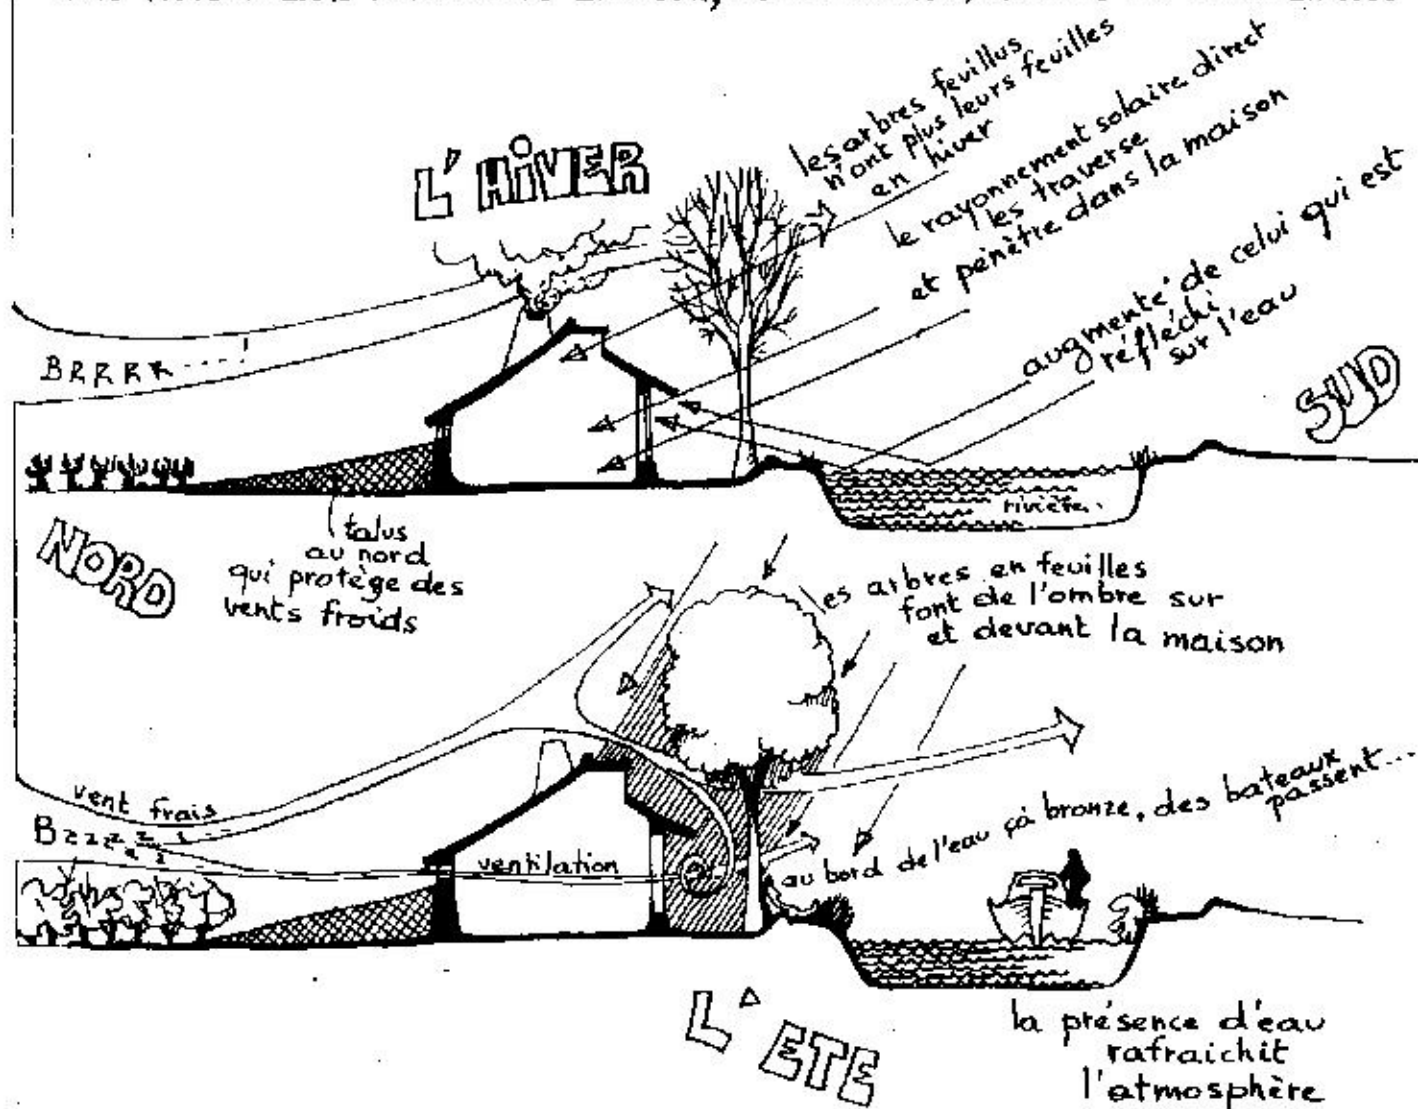 L'HIVER
les arbres feuillus
n'ont plus leurs feuilles
en hiver
le rayonnement solaire direct
les traverse
et pénètre dans la maison
augmenté de celui qui est
réfléchi
sur l'eau
BRRRR....!
SUD
rivière
NORD
talus
au nord
qui protège des
vents froids
es arbres en feuilles
font de l'ombre sur
et devant la maison
vent frais
Bzzzzzz
ventilation
au bord de l'eau çà bronze, des bateaux
passent...
L'ETE
la présence d'eau
rafraichit
l'atmosphère